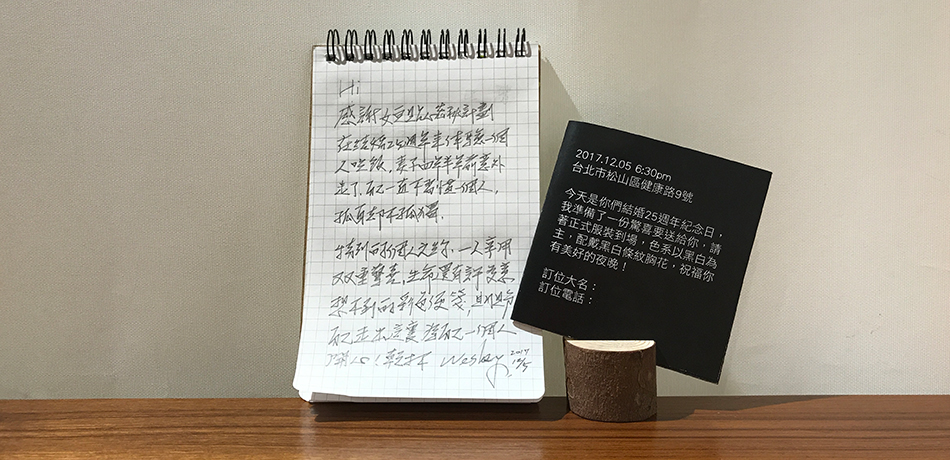 Hi
感謝女巫點
在結婚25週年來体驗一個
人吃飯，妻子四年半前意外
走了，我一直不習慣一個人，
孤身卻不孤獨，
特別的個人之約，一人享用
双重驚喜，生命還有許多意
想不到的彩色便箋，
我走出這裏 一個人
開心！ Wesley 2017
12/5
2017.12.05 6:30pm
台北市松山區健康路9號
今天是你們結婚25週年紀念日，
我準備了一份驚喜要送給你，請
著正式服裝到場，色系以黑白為
主，配戴黑白條紋胸花，祝福你
有美好的夜晚！
訂位大名：
訂位電話：